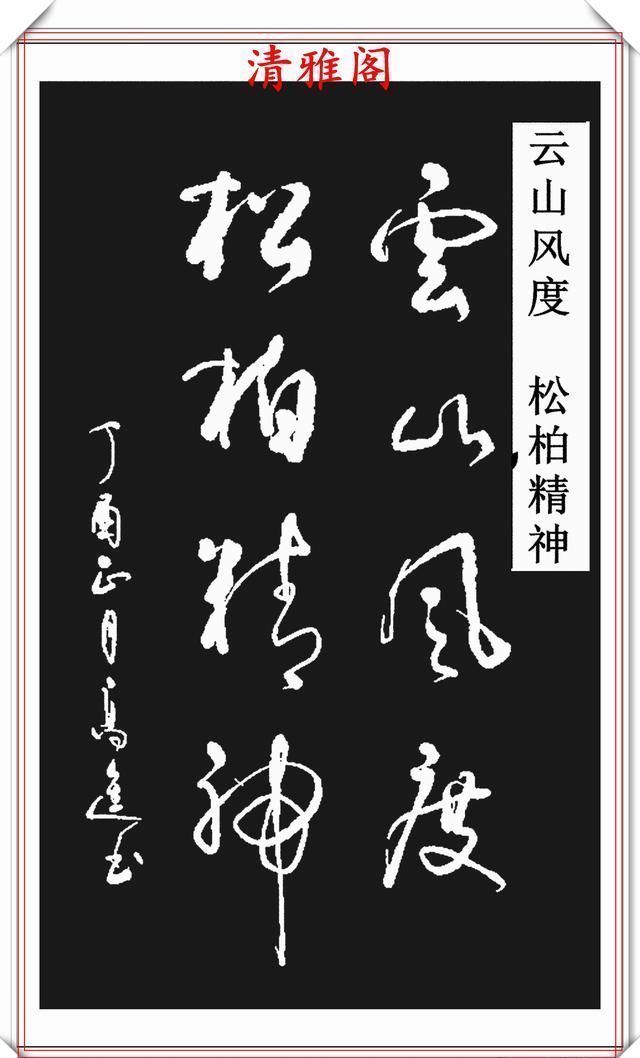 清雅阁
云山风度 松柏精神
雲山風度
松柏精神
丁酉正月高進玉